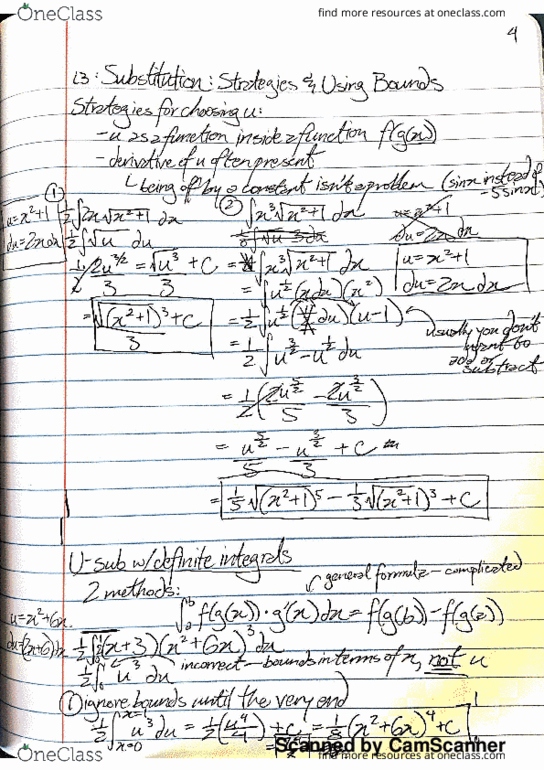 OneClass
find more resources at oneclass.com
4
L3: Substitution: Strategies & Using Bounds
Strategies for choosing u:
- u as a function inside a function f(g(x))
- derivative of u often present
↳ being off by a constant isn't a problem (sinx instead of -5sinx)
① ½∫2x√x²+1 dx
u=x²+1
du=2xdx
½∫√u du
½ 2u^3/2 / 3 = √u³ / 3 + C
= √(x²+1)³ / 3 + C
② ∫x³√x²+1 dx
u=x²+1
du=2xdx
= ∫x³√x²+1 dx
u=x²+1
du=2xdx
= ∫u^½ (xdx)(x²)
= ½∫u^½ (du)(u-1)
usually you don't want to add or subtract
= ½∫u^3/2 - u^½ du
= ½(2u^5/2 / 5 - 2u^3/2 / 3)
= u^5/2 / 5 - u^3/2 / 3 + C
= ⅕√(x²+1)⁵ - ⅓√(x²+1)³ + C
U-sub w/definite integrals
2 methods:
general formula - complicated
∫ₐᵇ f(g(x))·g'(x)dx = f(g(b)) - f(g(a))
u=x²+6x
½∫(x+3)(x²+6x)³dx
½∫₀¹ u³ du
incorrect - bounds in terms of x, not u
① ignore bounds until the very end
½∫ u³ du = ½(u⁴/4) + C = ⅛(x²+6x)⁴ + C
x=0
Scanned by CamScanner
OneClass
find more resources at oneclass.com